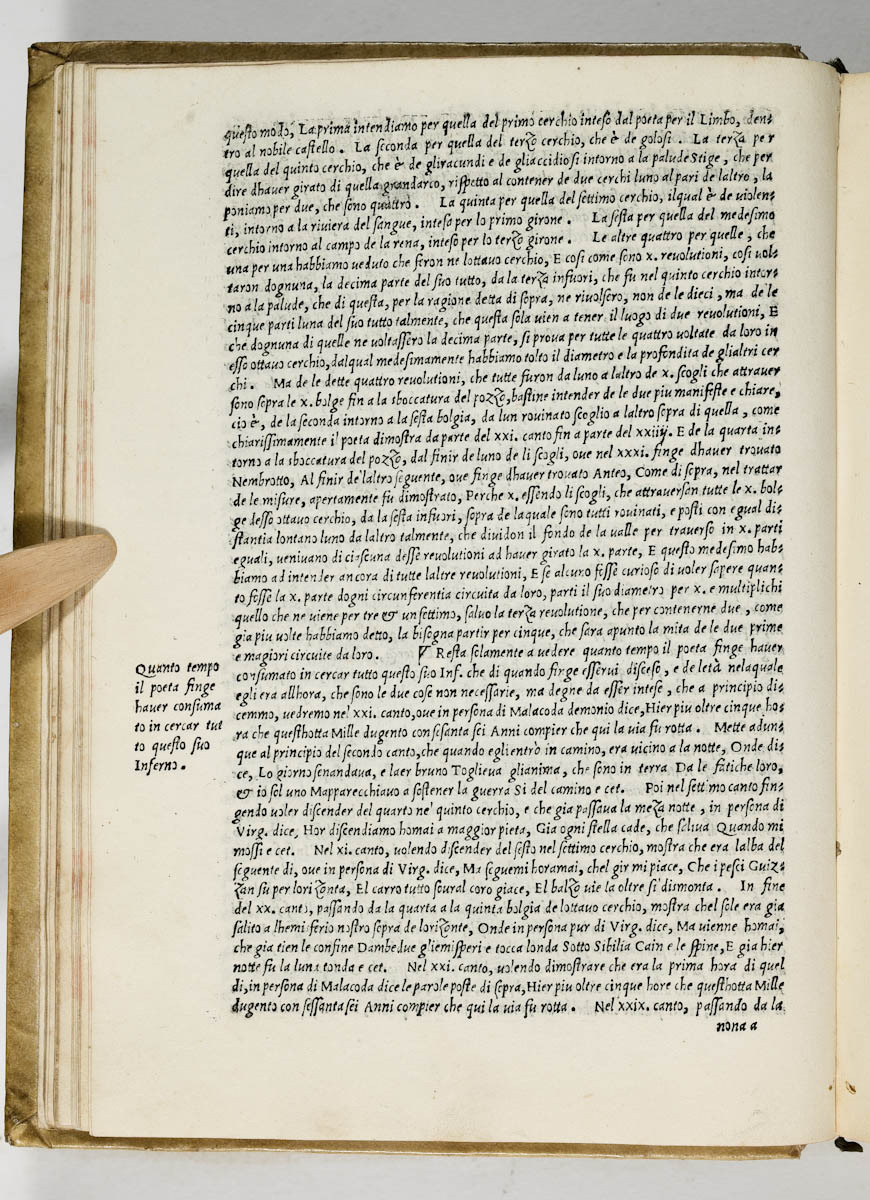 questo modo, La prima intendiamo per quella del primo cerchio inteso dal poeta per il Limbo, den-
tro al nobile castello. La seconda per quella del terzo cerchio, che è de golosi. La terza per
quella del quinto cerchio, che è de gliracundi e de gliaccidiosi intorno a la palude Stige, che per
dire dhauer girato di quella grandarco, rispetto al contener de due cerchi luno al pari de laltro, la
poniamo per due, che sono quattro. La quinta per quella del settimo cerchio, ilqual è de violen-
ti, intorno a la riuiera del sangue, inteso per lo primo girone. La sesta per quella del medesimo
cerchio intorno al campo de la rena, inteso per lo terzo girone. Le altre quattro per quelle, che
una per una habbiamo ueduto che feron ne lottauo cerchio, E cosi come sono x. reuolutioni, cosi uol-
taron dognuna, la decima parte del suo tutto, da la terza infuori, che fu nel quinto cerchio intor-
no a la palude, che di questa, per la ragione detta di sopra, ne riuolsero, non de le dieci, ma de le
cinque parti luna del suo tutto talmente, che questa sola uien a tener il luogo di due reuolutioni, E
che dognuna di quelle ne uoltassero la decima parte, si proua per tutte le quattro uoltate da loro in
esso ottauo cerchio, dalqual medesimamente habbiamo tolto il diametro e la profondita de glialtri cer
chi. Ma de le dette quattro reuolutioni, che tutte furon da luno a laltro de x. scogli che attrauer
sono sopra le x. bolge fin a la sboccatura del pozzo, bastine intender de le due piu manifeste e chiare,
cio è, de la seconda intorno a la sesta bolgia, da lun rouinato scoglio a laltro sopra di quella, come
chiarissimamente il poeta dimostra da parte del xxi. canto fin a parte del xxiiij. E de la quarta in-
torno a la sboccatura del pozzo, dal finir de luno de li scogli, oue nel xxxi. finge dhauer trouato
Nembrotto, Al finir de laltro seguente, oue finge dhauer trouato Anteo, Come di sopra, nel trattar
de le misure, apertamente fu dimostrato, Perche x. essendo li scogli, che attrauersan tutte le x. bol-
ge desso ottauo cerchio, da la sesta infuori, sopra de laquale sono tutti rouinati, e posti con egual di-
stantia lontano luno da laltro talmente, che diuidon il fondo de la ualle per trauerso in x. parti
eguali, ueniuano di ciascuna desse reuolutioni ad hauer girato la x. parte, E questo medesimo hab-
biamo ad intender ancora di tutte laltre reuolutioni, E se alcuno fosse curioso di uoler sapere quan-
to fosse la x. parte dogni circunferentia circuita da loro, parti il suo diametro per x. e multiplichi
quello che ne uiene per tre & un settimo, saluo la terza reuolutione, che per contenerne due, come
gia piu uolte habbiamo detto, la bisegna partir per cinque, che sara apunto la mita de le due prime
e magiori circuite da loro. Resta solamente a uedere quanto tempo il poeta finge hauer
consumato in cercar tutto questo suo Inf. che di quando finge esserui disceso, e de letà nelaquale
egli era allhora, che sono le due cose non necessarie, ma degne da esser intese, che a principio di-
cemmo, uedremo nel xxi. canto, oue in persona di Malacoda demonio dice, Hier piu oltre cinque ho-
ra che questhotta Mille dugento consesanta sei Anni compier che qui la uia fu rotta. Mette adun-
que al principio del secondo canto, che quando eglientrò in camino, era uicino a la notte, Onde di-
ce, Lo giorno senandaua, e laer bruno Toglieua glianima, che sono in terra Da le fatiche loro,
& io sol uno Mapparecchiauo a sostener la guerra Si del camino e cet. Poi nel settimo canto fin-
gendo uoler discender del quarto ne' quinto cerchio, e che gia passaua la meza notte, in persona di
Virg. dice, Hor discendiamo homai a maggior pieta, Gia ogni stella cade, che saliua Quando mi
mossi e cet. Nel xi. canto, uolendo discender del sesto nel settimo cerchio, mostra che era lalba del
seguente di, oue in persona di Virg. dice, Ma seguemi horamai, chel gir mi piace, Che i pesci Guiz-
zan su per lorizonta, El carro tutto soural coro giace, El balzo uie la oltre si dismonta. In fine
del xx. canto, passando da la quarta a la quinta bolgia de lottauo cerchio, mostra chel sole era gia
salito a lhemisferio nostro sopra de lorizonte, Onde in persona pur di Virg. dice, Ma uienne homai,
che gia tien le confine Dambedue gliemisperi e tocca londa Sotto Sibilia Cain e le spine, E gia hier
notte fu la luna tonda e cet. Nel xxi. canto, uolendo dimostrare che era la prima hora di quel
di, in persona di Malacoda dice le parole poste di sopra, Hier piu oltre cinque hore che questhotta Mille
dugento con sessanta sei Anni compier che qui la uia fu rotta. Nel xxix. canto, passando da la
nona a
Quanto tempo
il poeta finge
hauer consuma
to in cercar tut
to questo suo
Inferno.